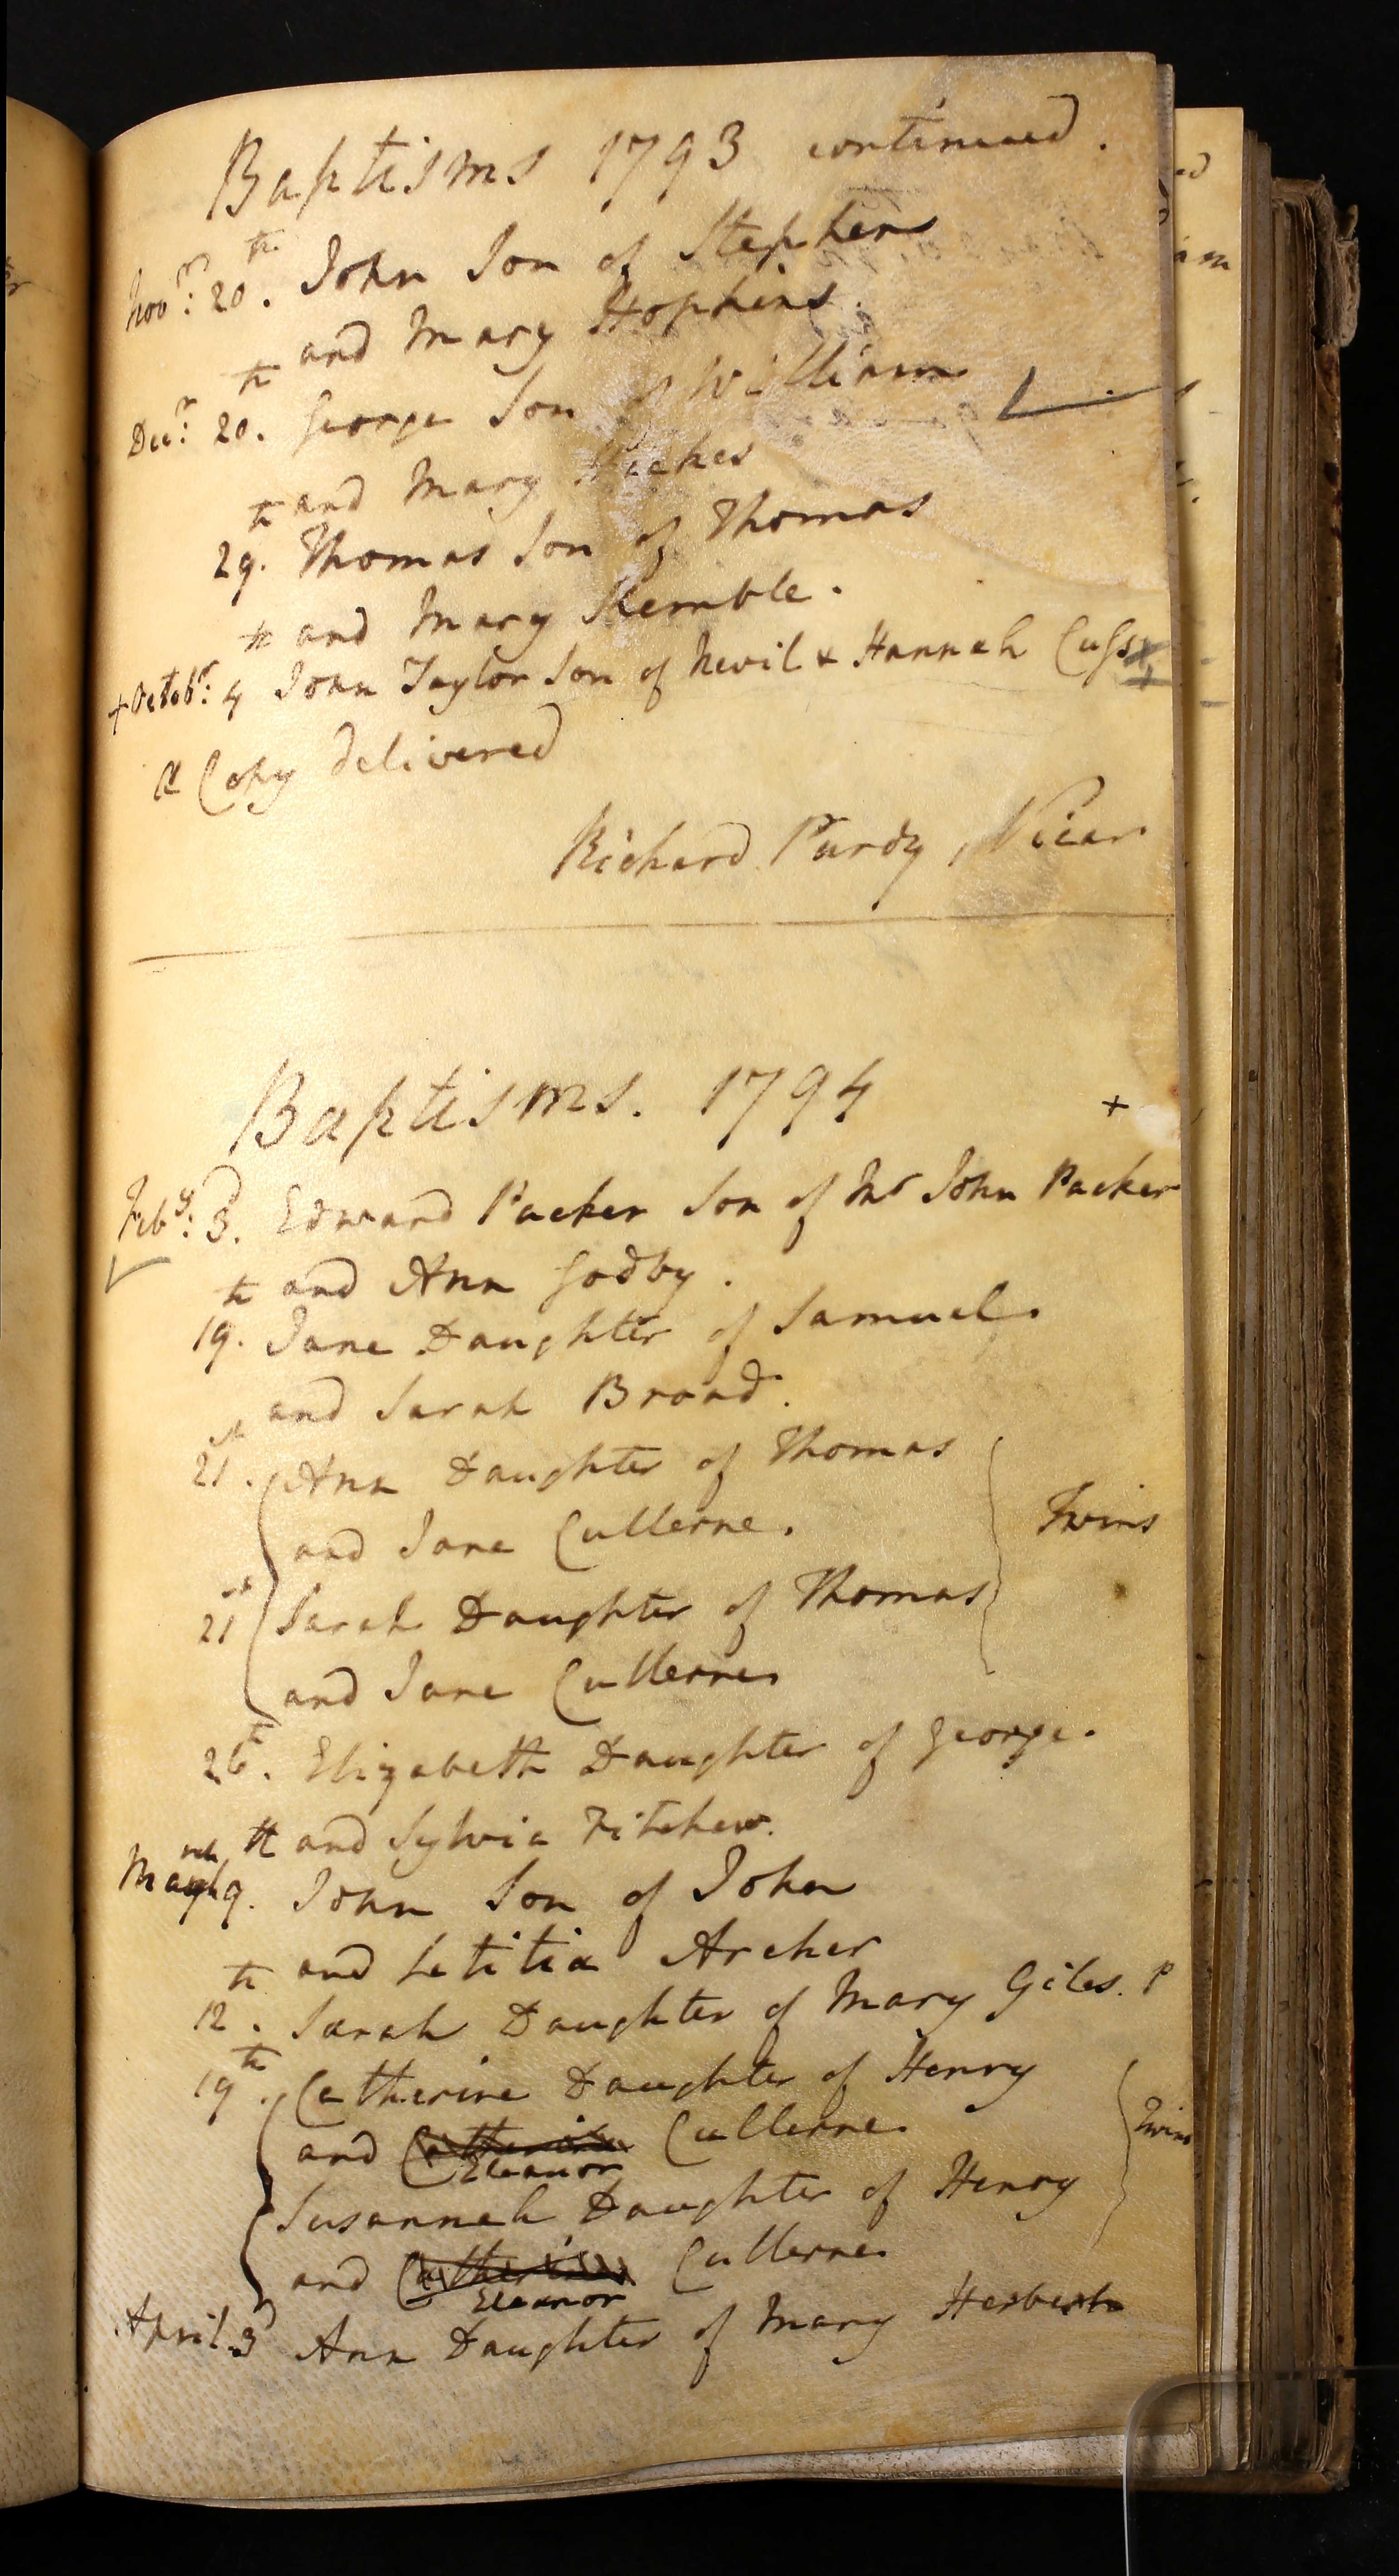 Baptisms 1793 continued.
Novr: 20th. John Son of Stephen
and Mary Hopkins.
Decr: 20th. George Son of William
and Mary
29th. Thomas Son of Thomas
and Mary Kemble.
+ Octobr: 4th John Taylor Son of Nevil & Hannah Cuss +
A Copy delivered
Richard Purdy, Vicar
Baptisms. 1794
+
Feby: 3d. Edward Packer Son of Mr John Packer
and Ann Godby.
19th. Jane Daughter of Samuel
and Sarah Broad.
21st. Ann Daughter of Thomas
and Jane Cullerne.
Twins
21st Sarah Daughter of Thomas
and Jane Cullerne
26th. Elizabeth Daughter of George
and Sylvia Fitchew.
March 9th. John Son of John
and Letitia Archer
12th. Sarah Daughter of Mary Giles. P
19th. Catherine Daughter of Henry
and Catherine Cullerne
Eleanor
Twins
Susannah Daughter of Henry
and Catherine Cullerne
Eleanor
April 3d Ann Daughter of Mary Herbert